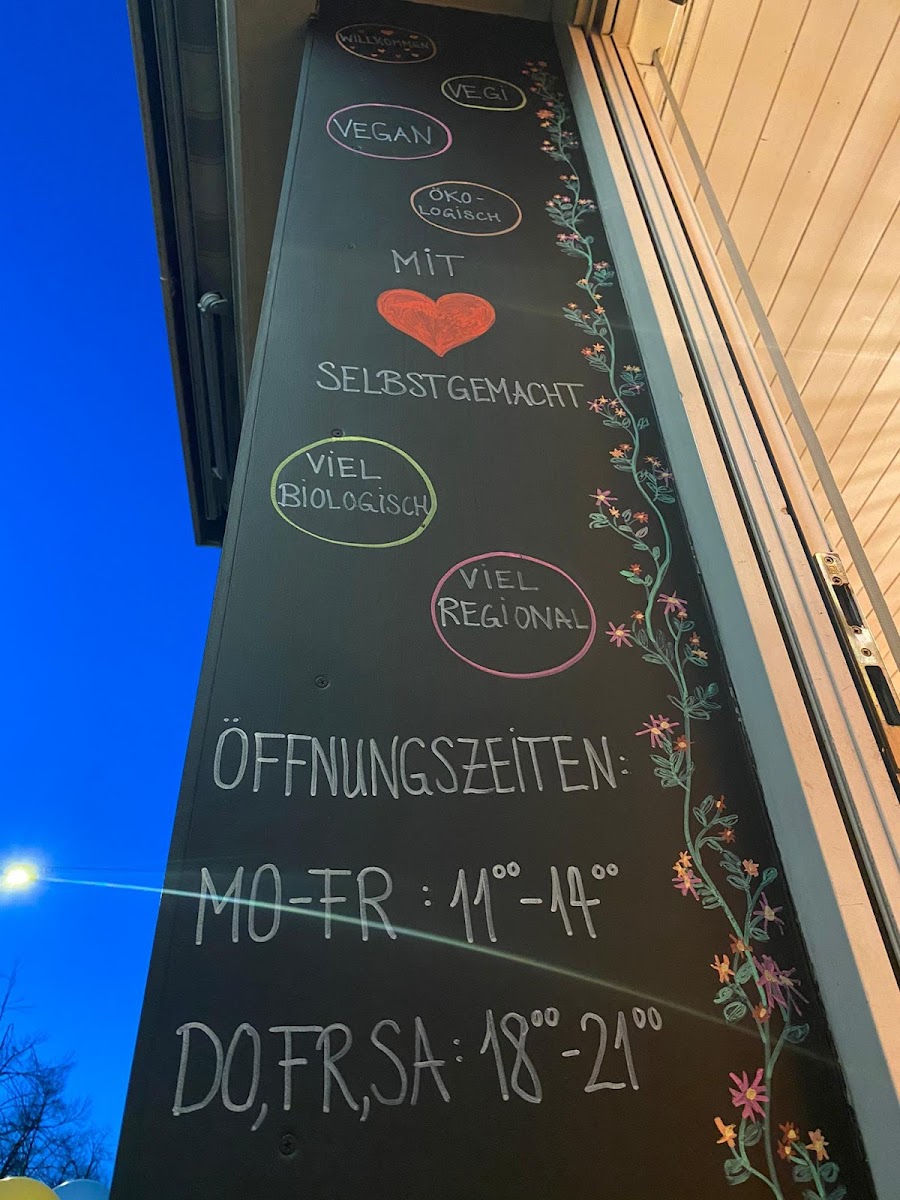 WILLKOMMEN
VEGI
VEGAN
ÖKO-
LOGISCH
MIT
SELBSTGEMACHT
VIEL
BIOLOGISCH
VIEL
REGIONAL
ÖFFNUNGSZEITEN:
MO-FR: 11⁰⁰-14⁰⁰
DO,FR,SA: 18⁰⁰-21⁰⁰